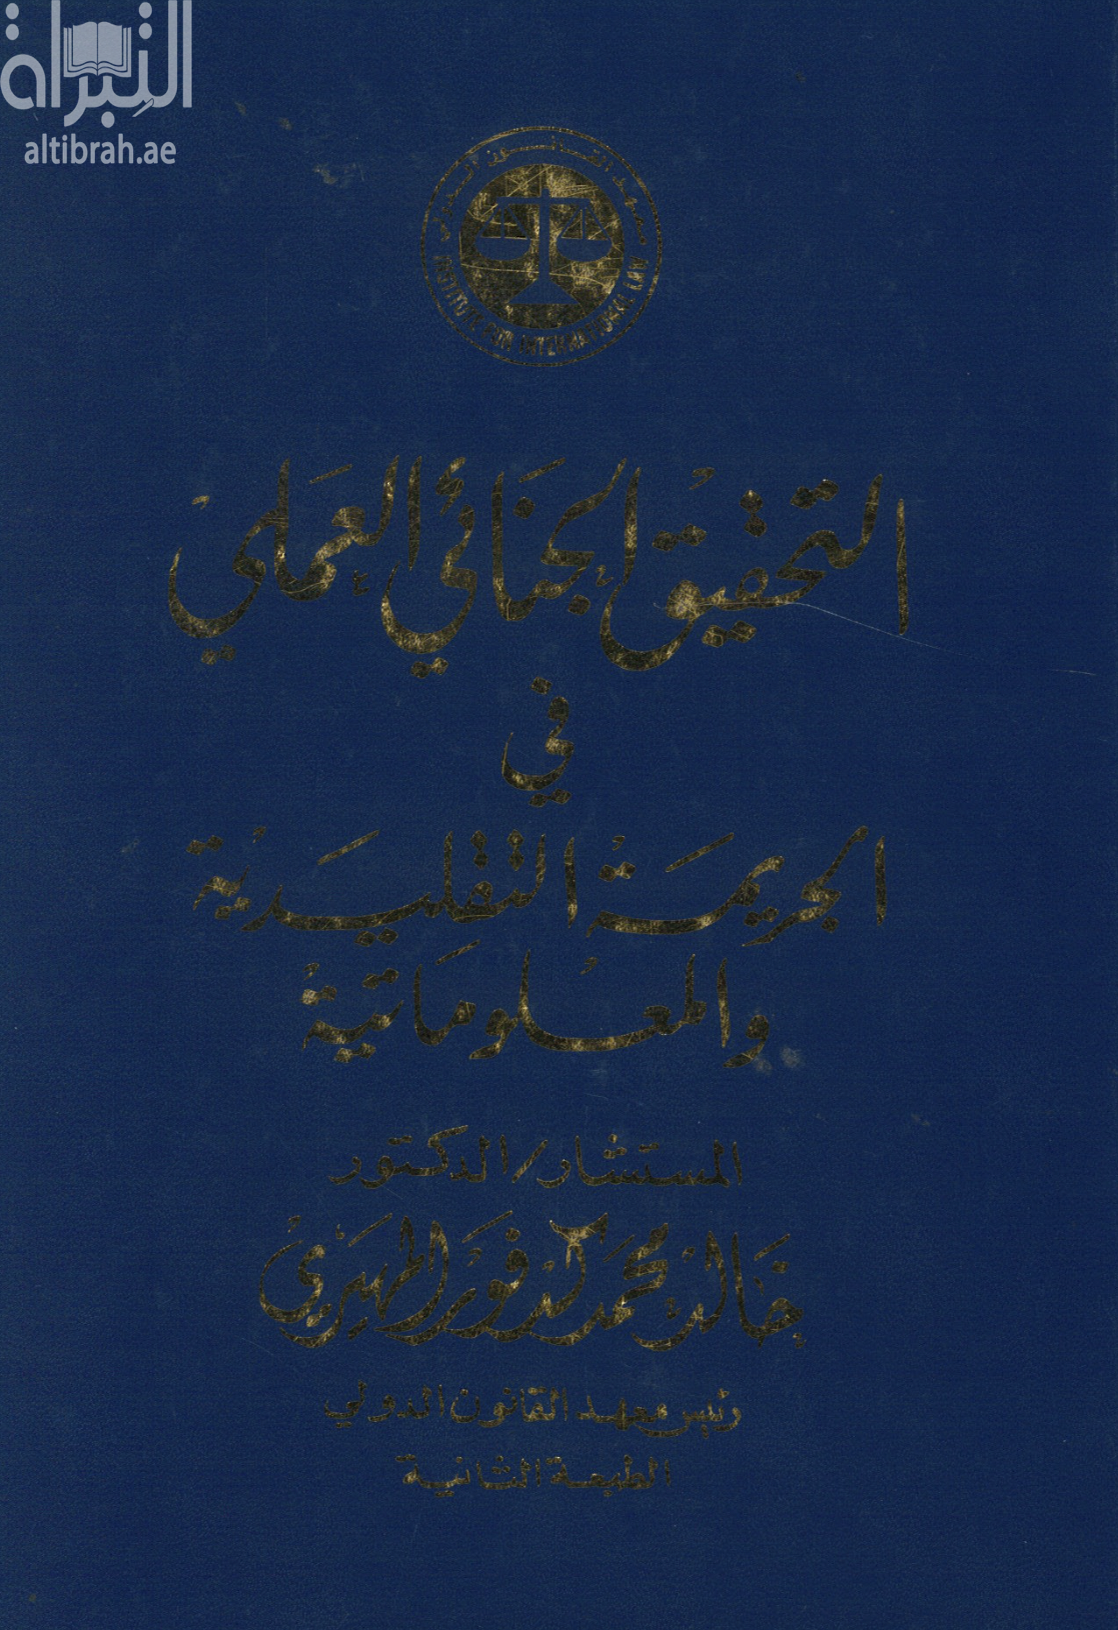 التبراة
altibrah.ae
معهد القانون الدولي
INSTITUTE FOR INTERNATIONAL LAW
التحقيق الجنائي العملي
في
الجريمة التقليدية
والمعلوماتية
المستشار/الدكتور
خالد محمد كدفور المهيري
رئيس معهد القانون الدولي
الطبعة الثانية